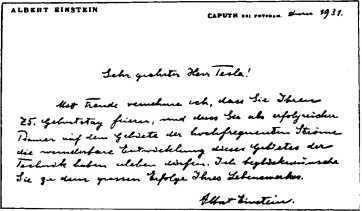 ALBERT EINSTEIN
CAPUTH BEI POTSDAM, Juni 1931.
Sehr geehrter Herr Tesla!
Mit Freude vernehme ich, dass Sie Ihren
75. Geburtstag feiern, und dass Sie als erfolgreicher
Pionier auf dem Gebiete der hochfrequenten Ströme
die wunderbare Entwicklung dieses Gebietes der
Technik haben erleben dürfen. Ich beglückwünsche
Sie zu dem grossen Erfolge Ihres Lebenswerkes.
Albert Einstein.